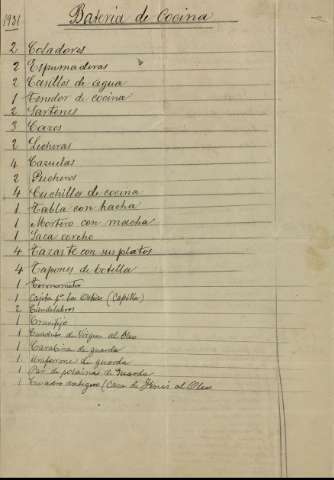 1931 Bateria de Cocina
2 Coladores
2 Espumaderas
2 Casillos de agua
1 Tenedor de cocina
2 Sartenes
3 Cazos
2 Lecheras
4 Cazuelas
2 Pucheros
4 Cuchillos de cocina
1 Tabla con hacha
1 Mortero con macha
1 Saca corcho
4 Tazas te con sus platos
4 Tapones de botella
1 Termometro
1 Cajita pª las Ostias (Capilla)
2 Candelabros
1 Crucifijo
1 Cuadrito de Virgen al Oleo
1 Carabina de guarda
1 Uniforme de guarda
1 Par de polainas de Guarda
1 Cuadro antiguo (Casa de al Oleo